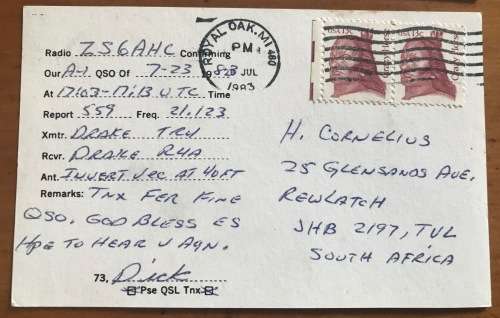 Radio ZS6AHC Confirming
Our A-1 QSO Of 7-23 1983
At 17:03-17:13 UTC Time
Report 559 Freq. 21.123
Xmtr. DRAKE TR4
Rcvr. DRAKE R4A
Ant. INVERT VEE AT 40FT
Remarks: TNX FER FINE
QSO. GOD BLESS ES
HPE TO HEAR U AGN.
73, Dick
Pse QSL Tnx
ROYAL OAK, MI 480
PM
JUL
1983
USA 13c
H. CORNELIUS
25 GLENSANDS AVE.
REWLATCH
JHB 2197, TVL
SOUTH AFRICA